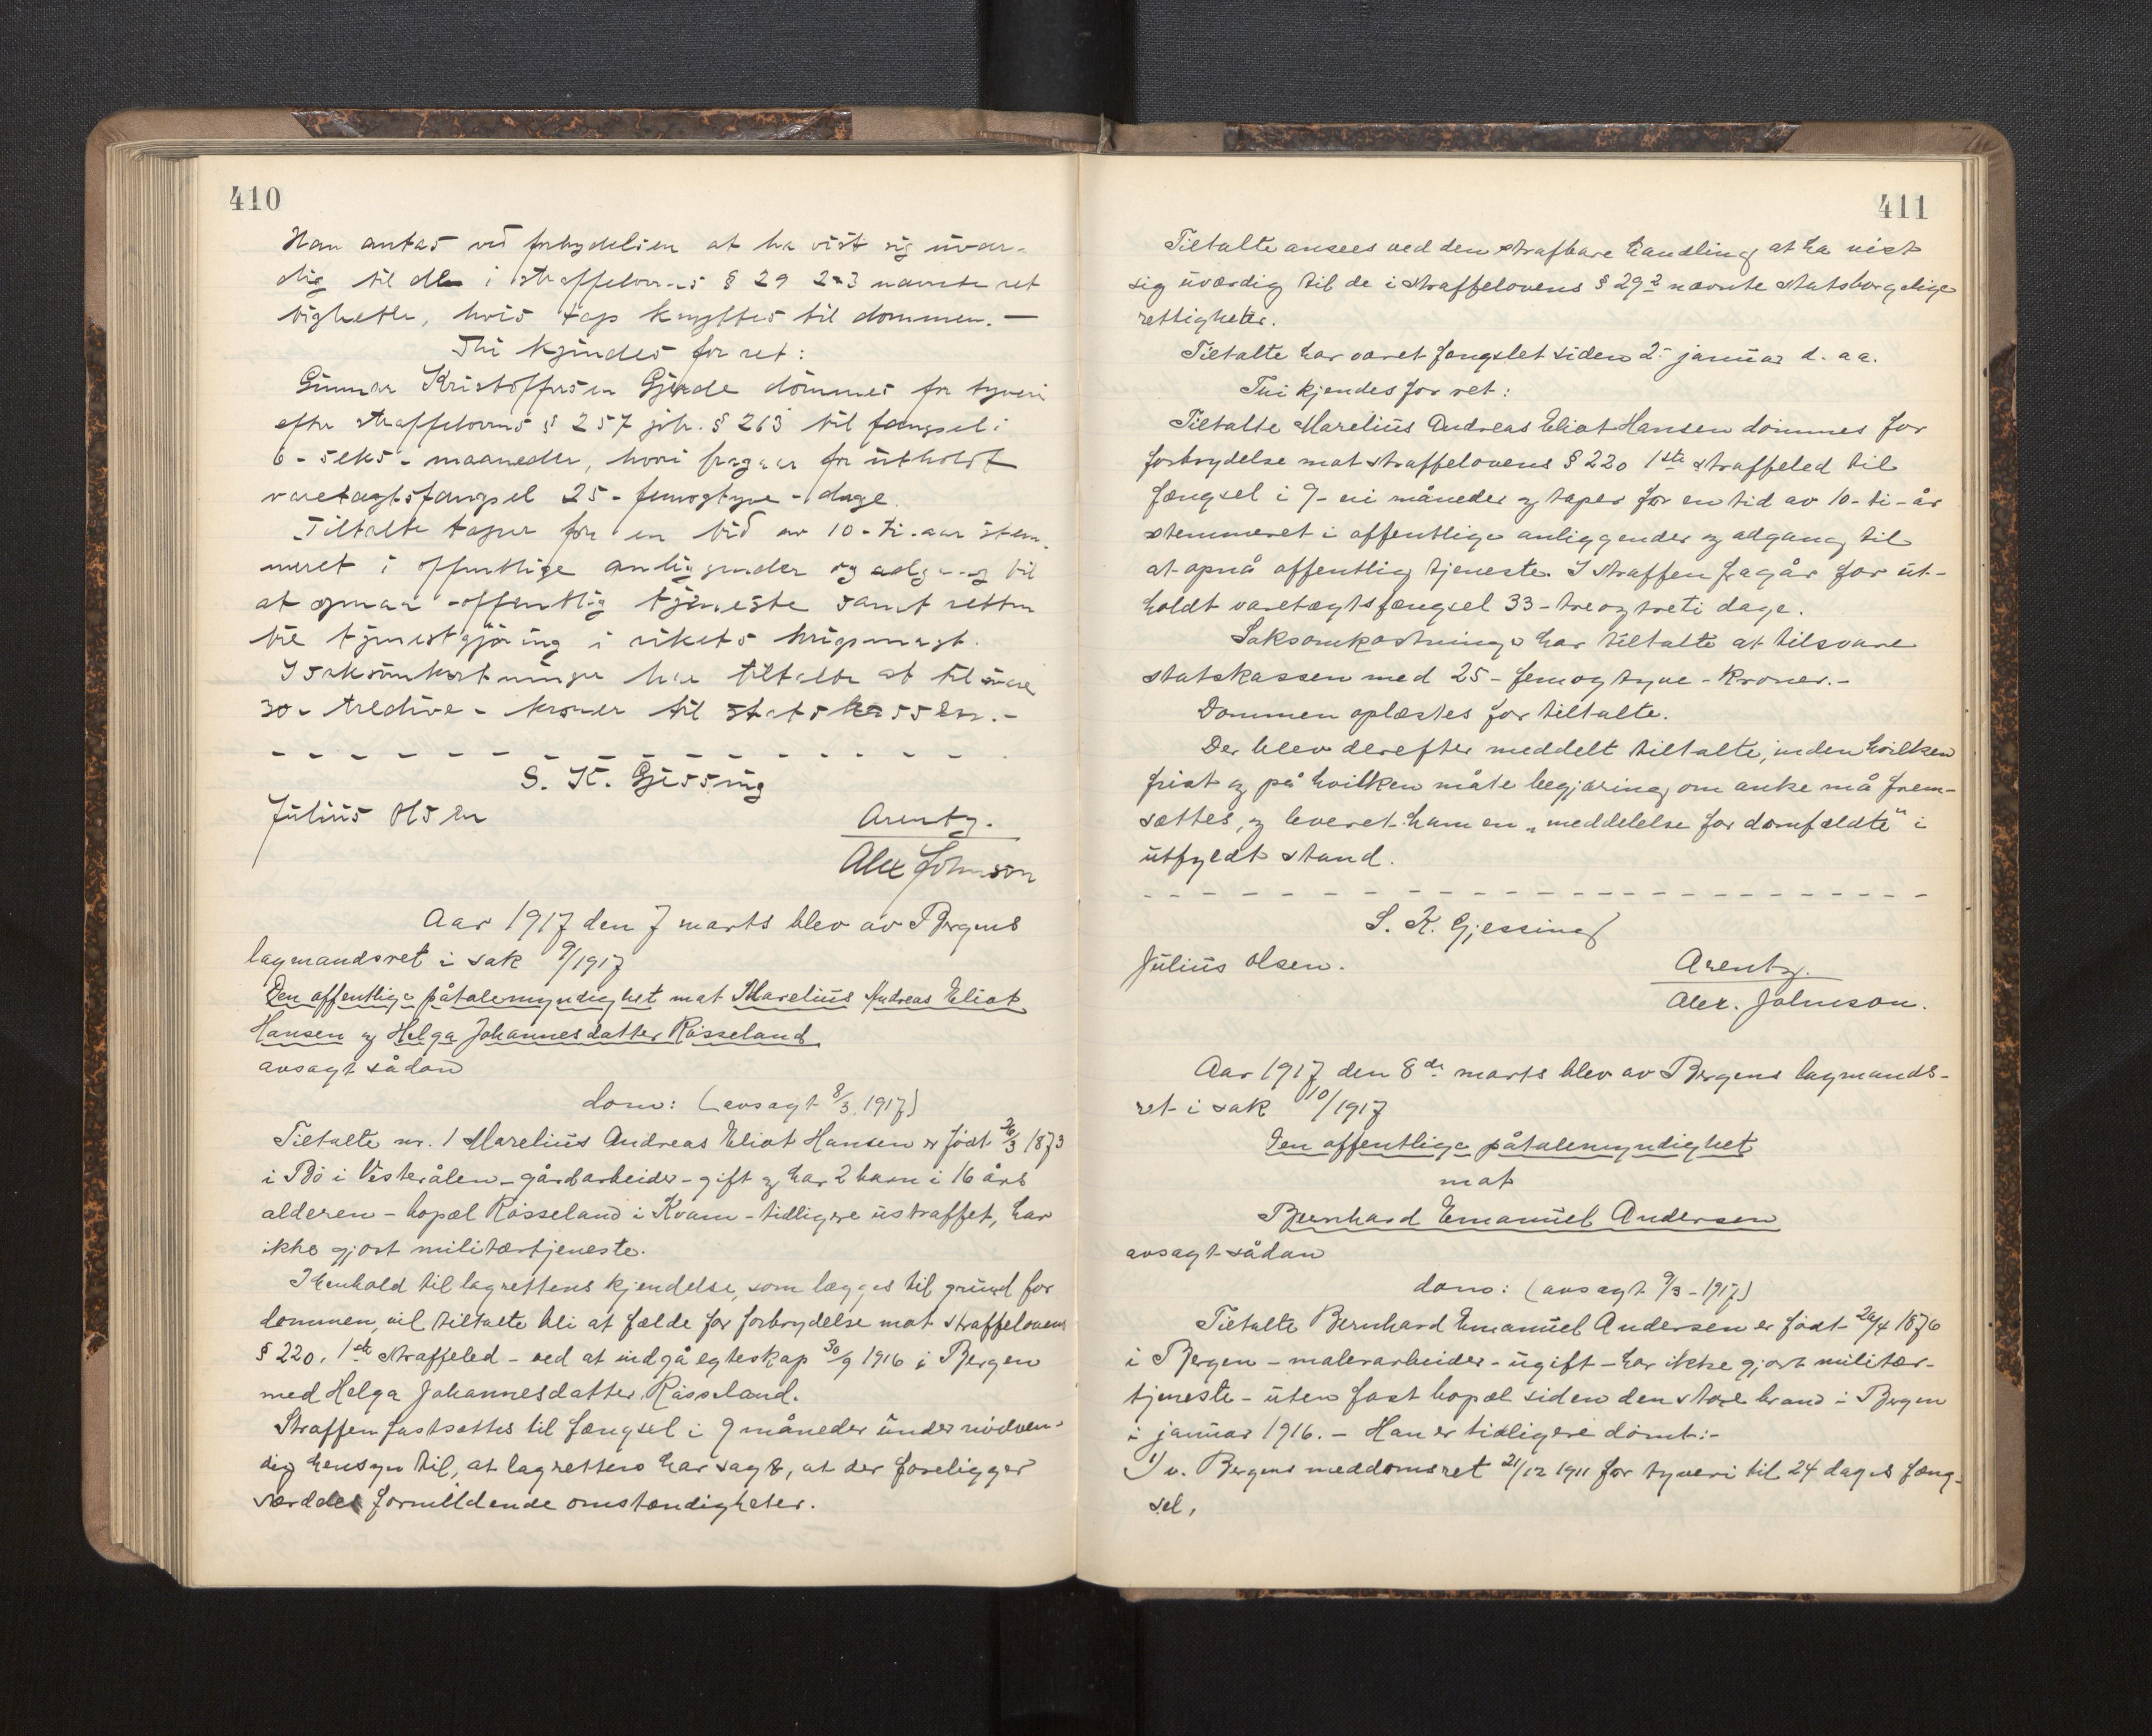 410
Han antas ved forbrydelsen at ha vist sig uvær-
dig til de i straffelovens § 29 2-3 nævnte ret
tigheter, hvis tap knyttes til dommen. —
Thi kjendes for ret:
Gunnar Kristoffersen Gjerde dömmes for tyveri
efter straffelovens § 257 jfr. § 263 til fængsel i
6 - seks - maaneder, hvori fragaar for utholdt
varetægtsfængsel 25 - femogtyve - dage.
Tiltalte taper for en tid av 10 - ti - aar stem-
meret i offentlige anliggender og adgang til
at opnaa offentlig tjeneste samt retten
til tjenestgjöring i rikets krigsmagt.
I saksomkostninger har tiltalte at tilsvare
30 - tredive - kroner til statskassen. -
S. K. Gjessing
Julius Olsen
Arentz.
Alex Johnson
Aar 1917 den 7 marts blev av Bergens
lagmandsret i sak 9/1917
Den offentlige påtalemyndighet mot Marelius Andreas Eliot
Hansen og Helga Johannesdatter Rösseland
avsagt sådan
dom: (avsagt 8/3 1917)
Tiltalte nr. 1 Marelius Andreas Eliot Hansen er födt /3 1873
i Bö i Vesterålen - gårdarbeider - gift og har 2 barn i 16 års
alderen - bopæl Rösseland i Kvam - tidligere ustraffet, har
ikke gjort militærtjeneste.
I henhold til lagrettens kjendelse, som lægges til grund for
dommen, vil tiltalte bli at fælde for forbrydelse mot straffelovens
§ 220, 1ste straffeled - ved at indgå egteskap 30/9 1916 i Bergen
med Helga Johannesdatter Rösseland.
Straffen fastsættes til fængsel i 9 måneder under nödven-
dig hensyn til, at lagretten har sagt, at der foreligger
særdeles formildende omstændigheter.
411
Tiltalte ansees ved den strafbare handling at ha vist
sig uværdig til de i straffelovens § 29 2 nævnte statsborgelige
rettigheter.
Tiltalte har været fængslet siden 2. januar d. aa.
Thi kjendes for ret:
Tiltalte Marelius Andreas Eliot Hansen dömmes for
forbrydelse mot straffelovens § 220 1ste straffeled til
fængsel i 9 - ni måneder og taper for en tid av 10 - ti - år
stemmeret i offentlige anliggender og adgang til
at opnå offentlig tjeneste. I straffen fragår for ut-
holdt varetægtsfængsel 33 - treogtreti dage.
Saksomkostninger har tiltalte at tilsvare
statskassen med 25 - femogtyve - kroner. -
Dommen oplæstes for tiltalte.
Der blev derefter meddelt tiltalte, inden hvilken
frist og på hvilken måte begjæring om anke må frem-
sættes, og leveret ham en „meddelelse for domfældte" i
utfyldt stand.
S. K. Gjessing
Julius Olsen.
Arentz.
Alex. Johnson.
Aar 1917 den 8de marts blev av Bergens lagmands-
ret i sak 10/1917
Den offentlige påtalemyndighet
mot
Bernhard Emanuel Andersen
avsagt sådan
dom: (avsagt 9/3 - 1917)
Tiltalte Bernhard Emanuel Andersen er födt /4 1876
i Bergen - malerarbeider - ugift - har ikke gjort militær-
tjeneste - uten fast bopæl siden den store brand i Bergen
i januar 1916. - Han er tidligere dömt: -
1) v. Bergens meddomsret 21/12 1911 for tyveri til 24 dages fæng-
sel,